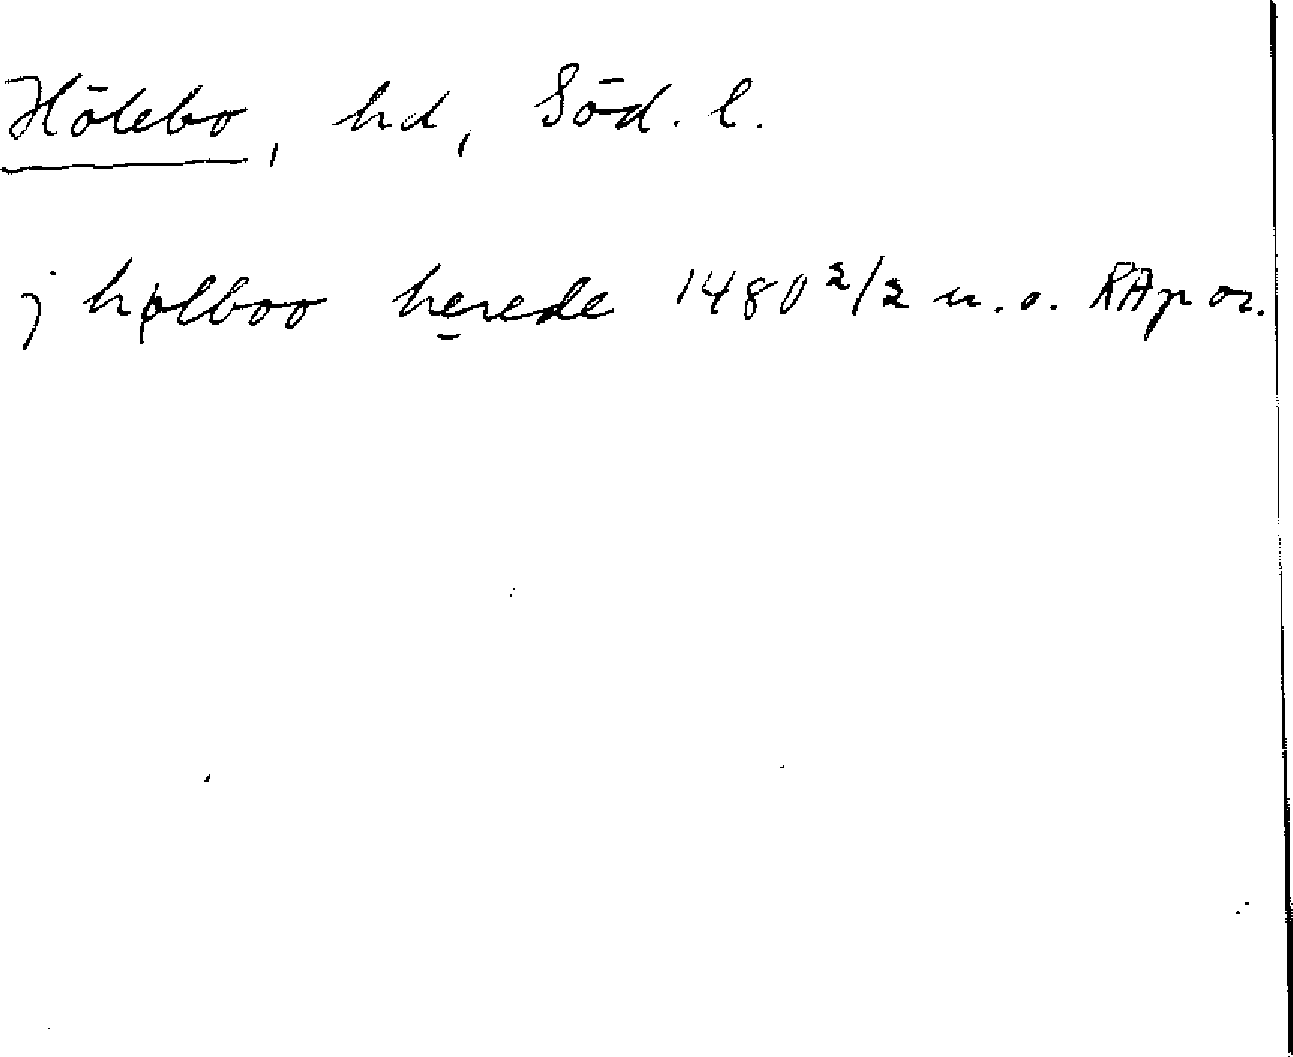 Hölebo, hd, Söd. l.
j hølboo herede 1480 2/2 u.o. RAp or.